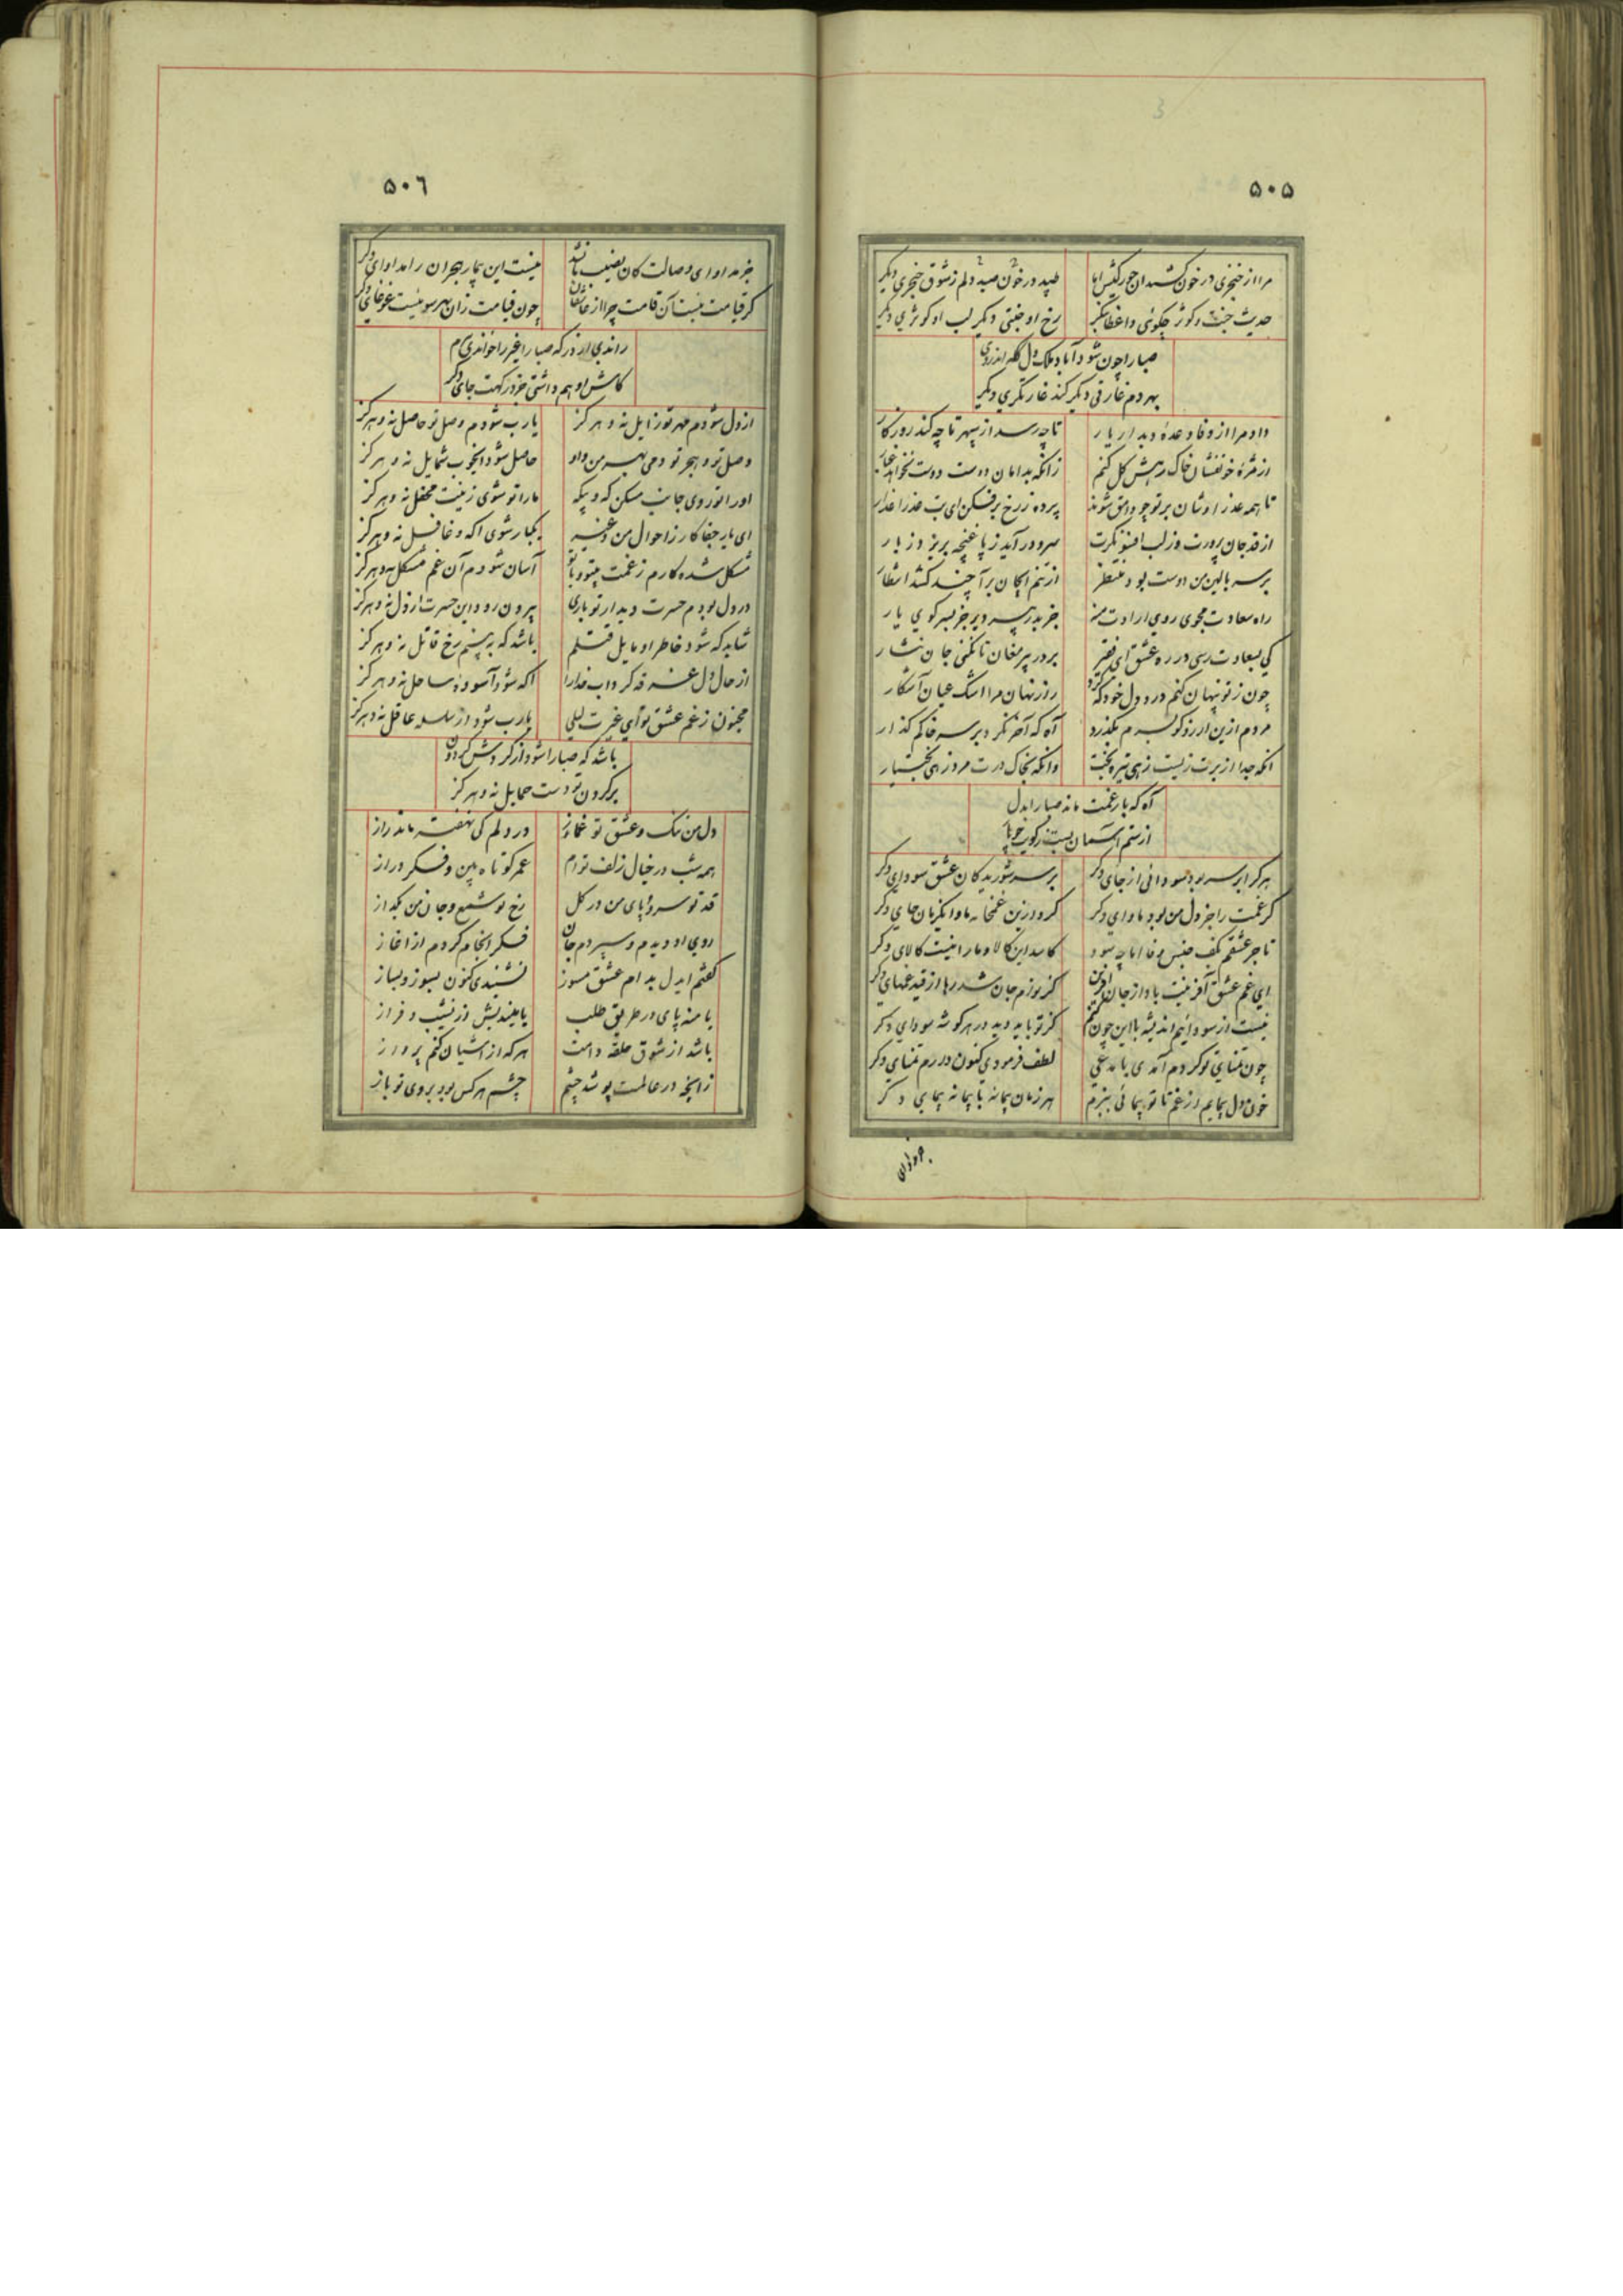 ۵۰۵
مرا از خنجری در خون کشید آن جور کیش اما طپید در خون صید دلم ز شوق خنجری دیگر
حدیث جنت و کوثر چکوئی واعظا بنگر رخ او جنتی دیگر لب او کوثری دیگر
صبا را چون شود آباد ملک دل که اندر وی
بهر دم غارتی دیگر کند غارتگری دیگر
داد مرا از وفا وعدهٔ دیدار یار تا چه رسد از سپهر تا چه کند روزگار
از مژهٔ خونفشان خاک رهش گل کنم زانکه بدامان دوست دوست نخواهد غبار
تا همه عذرا وشان بر تو چو وامق شوند پرده ز رخ برفکن ای بت عذرا عذار
از قد جان پرورت وز لب افسونگرت سرو درآید ز پا غنچه بریزد ز بار
بر سر بالین من دوست بود منتظر از تنم ایجان برآ چند کشد انتظار
راه سعادت مجوی روی ارادت منه جز بدر پیر دیر جز بسر کوی یار
کی بسعادت رسی در ره عشق ای فقیر بر در پیر مغان تا نکنی جان نثار
چون ز تو پنهان کنم درد دل خود که کرد راز نهان مرا اشک عیان آشکار
مردم ازین آرزو کو بسرم بگذرد آه که آخر نکرد بر سر خاکم گذار
آنکه جدا از برت زیست زهی تیره بخت وانکه بخاک درت مرد زهی بختیار
آه که بار غمت ماند صبا را بدل
از ستم آسمان بست ز کویت چو بار
هر کرا بر سر بود سودائی از جای دگر بر سر شوریدگان عشق سودای دگر
گر غمت را جز دل من بود ماوای دگر کرد ازین غمخانه ماوا یکزمان جای دگر
تاجر عشقم بکف جنس وفا اما چه سود کاسد این کالا و ما را نیست کالای دگر
ای غم عشق آفرینت باد از جان آفرین کز تو ازم جان شد رها از قید غمهای دگر
نیست از سودائیم اندیشه با این چون کنم کز تو باید دید در هر گوشه سودای دگر
چون تمنای تو کردم آمدی با مدعی لطف فرمودی کنون دارم تمنای دگر
خون دل پیمایم از غم تا تو پیمائی ببزم هر زمان پیمانه با پیمانه پیمای دگر
جز مداوای
۵۰۶
جز مداوای وصالت کان نصیب ما نشد نیست این بیمار هجران را مداوای دگر
گر قیامت نیست آن قامت چرا از عاشقان چون قیامت زان بهر سو نیست غوغای دگر
راندی از درگه صبا را غیر را خواندی برم
کاش او هم داشتی جز درگهت جای دگر
از دل شودم مهر تو زایل نه و هرگز یارب شودم وصل تو حاصل نه و هرگز
وصل تو و هجر تو دمی بهر من و او حاصل شود ای خوب شمایل نه و هرگز
او را تو روی جانب مسکن که و بیگه ما را تو شوی زینت محفل نه و هرگز
ای یار جفاکار ز احوال من و غیر یکبار شوی آگه و غافل نه و هرگز
مشکل شده کارم ز غمت بیتو و با تو آسان شودم آن غم مشکل نه و هرگز
در دل بودم حسرت دیدار تو باری بیرون رود این حسرت از دل نه و هرگز
شاید که شود خاطر او مایل قتلم باشد که ببینم رخ قاتل نه و هرگز
از حال دل غرقه گرداب خدا را آگه شود آسودهٔ ساحل نه و هرگز
مجنون ز غم عشق تو ای غیرت لیلی یارب شود از سلسله عاقل نه و هرگز
باشد که صبا را شود از گردش گردون
بر گردن تو دست حمایل نه و هرگز
دل من تنگ و عشق تو غماز در دلم کی نهفته ماند راز
همه شب در خیال زلف توام عمر کوتاه بین و فکر دراز
قد تو سرو و پای من در گل رخ تو شمع و جان من بگداز
روی او دیدم و سپردم جان فکر انجام کردم از آغاز
گفتم ایدل بدام عشق مسوز نشنیدی کنون بسوز و بساز
یا منه پای در طریق طلب یا میندیش از نشیب و فراز
باشد از شوق حلقهٔ دامت هر که از آشیان کنم پرواز
زانچه در عالمست پوشد چشم چشم هر کس بود بروی تو باز